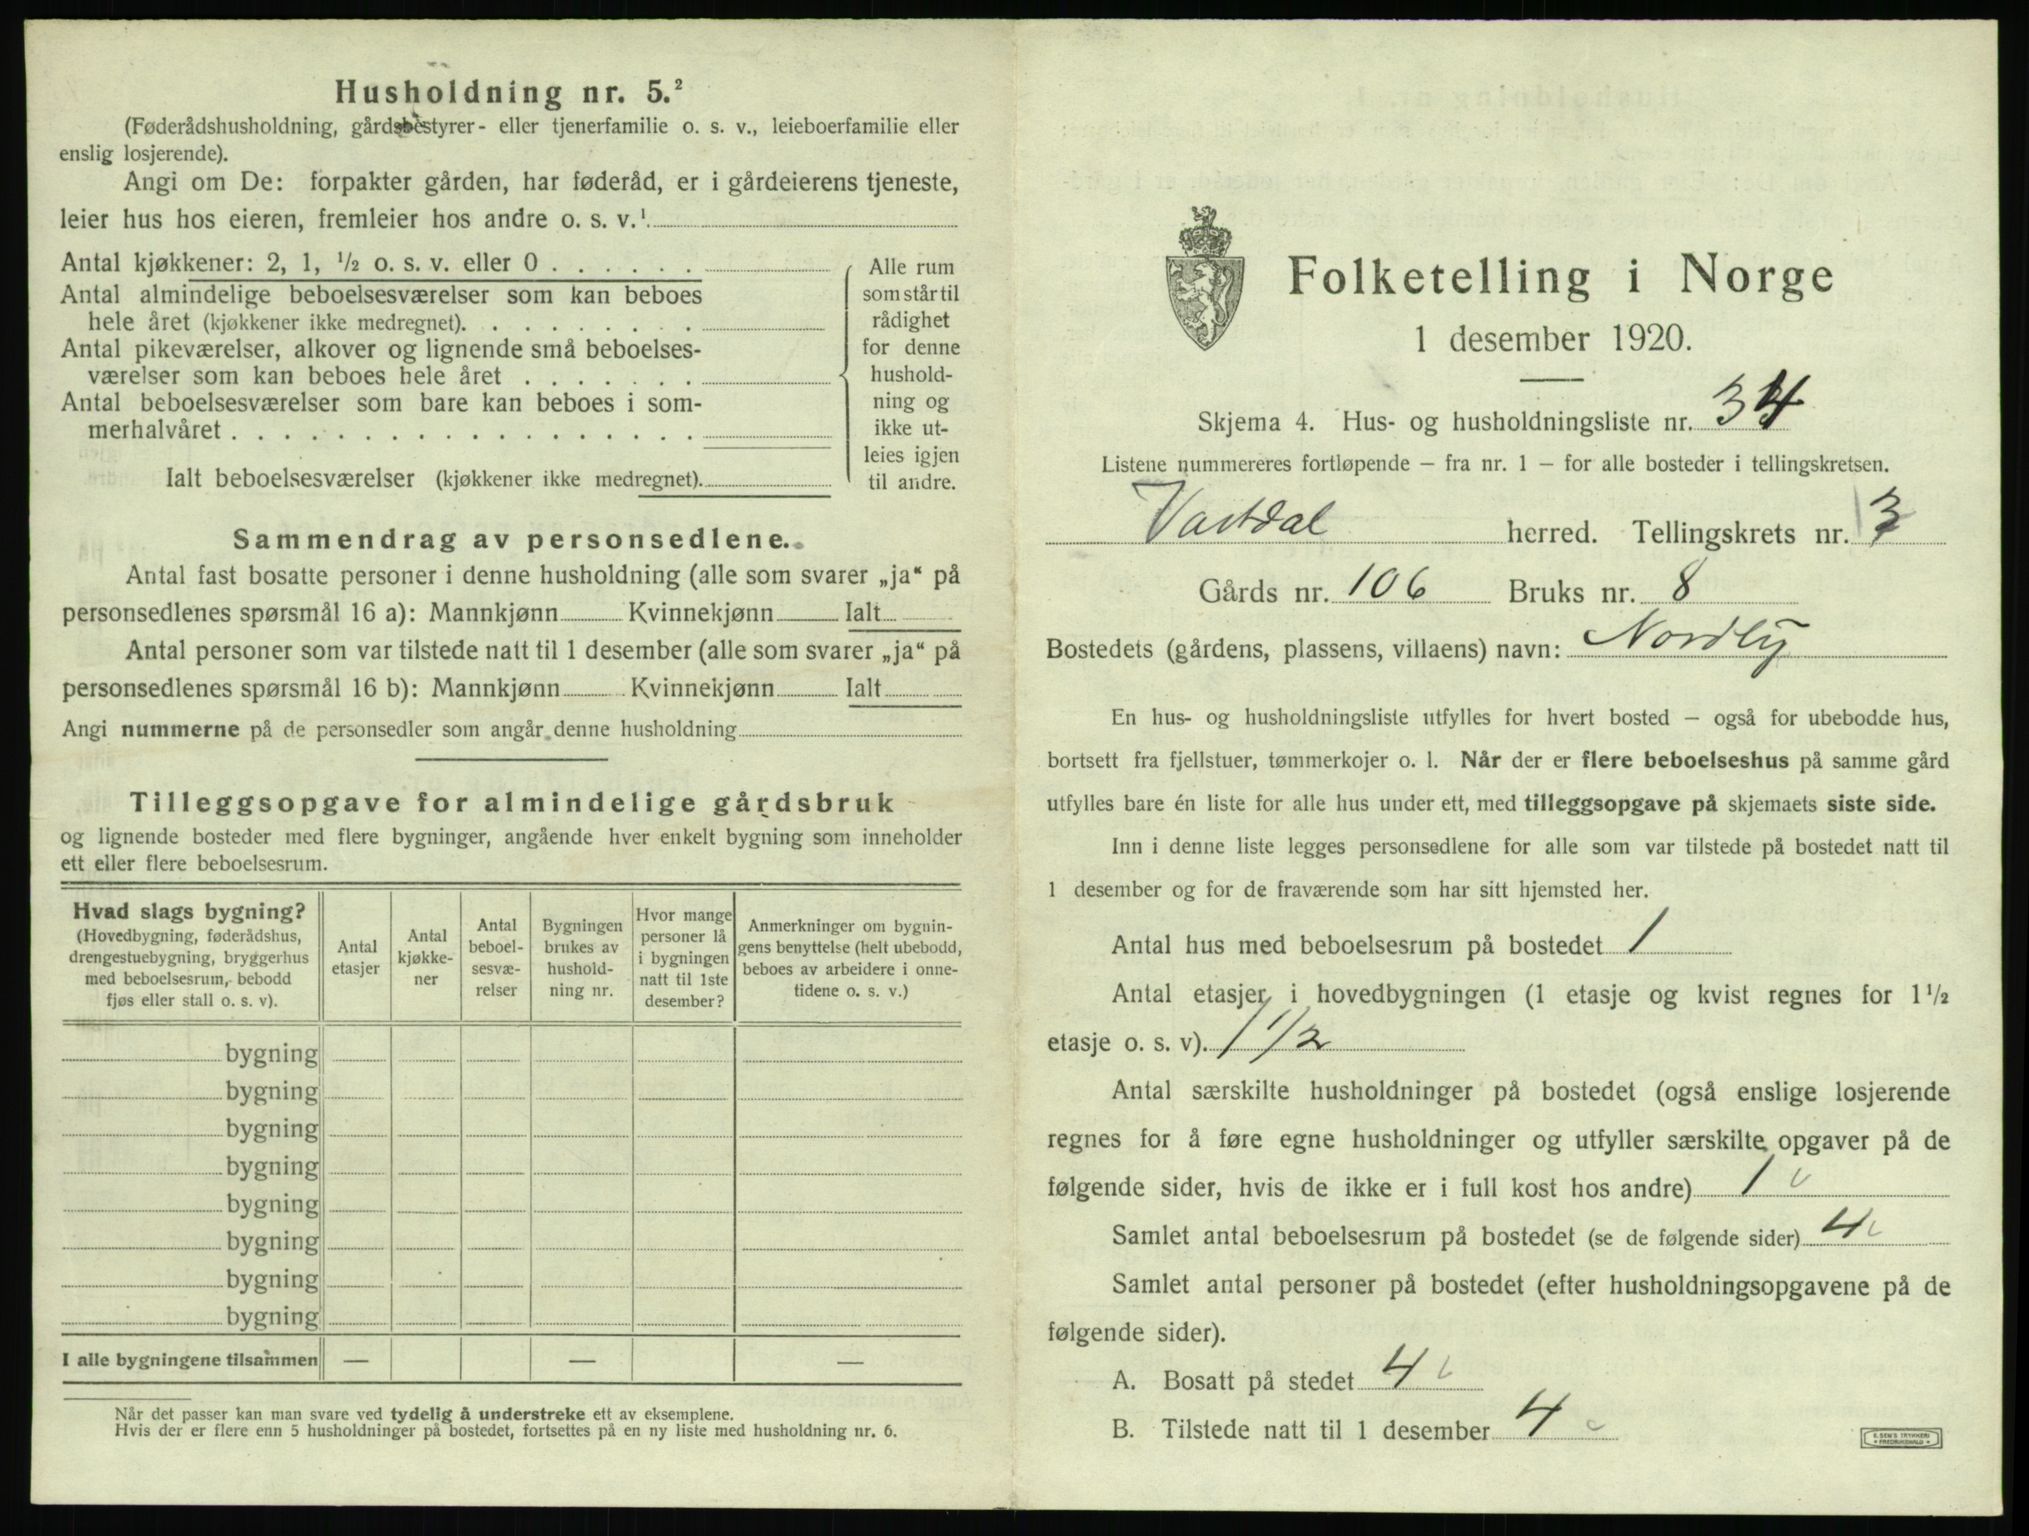 Husholdning nr. 5.²
(Føderådshusholdning, gårdsbestyrer- eller tjenerfamilie o. s. v., leieboerfamilie eller
enslig losjerende).
Angi om De: forpakter gården, har føderåd, er i gårdeierens tjeneste,
leier hus hos eieren, fremleier hos andre o. s. v.¹
Antal kjøkkener: 2, 1, ½ o. s. v. eller 0 . . . . . .
Antal almindelige beboelsesværelser som kan beboes
hele året (kjøkkener ikke medregnet). . . . . . . . .
Antal pikeværelser, alkover og lignende små beboelses-
værelser som kan beboes hele året . . . . . . .
Antal beboelsesværelser som bare kan beboes i som-
merhalvåret . . . . . . . . . . . . . . . . . .
Ialt beboelsesværelser (kjøkkener ikke medregnet).
Alle rum
som står til
rådighet
for denne
hushold-
ning og
ikke ut-
leies igjen
til andre.
Sammendrag av personsedlene.
Antal fast bosatte personer i denne husholdning (alle som svarer „ja“ på
personsedlenes spørsmål 16 a): Mannkjønn Kvinnekjønn Ialt
Antal personer som var tilstede natt til 1 desember (alle som svarer „ja“ på
personsedlenes spørsmål 16 b): Mannkjønn Kvinnekjønn Ialt
Angi nummerne på de personsedler som angår denne husholdning
Tilleggsopgave for almindelige gårdsbruk
og lignende bosteder med flere bygninger, angående hver enkelt bygning som inneholder
ett eller flere beboelsesrum.
Hvad slags bygning?
(Hovedbygning, føderådshus,
drengestuebygning, bryggerhus
med beboelsesrum, bebodd
fjøs eller stall o. s. v).
Antal
etasjer
Antal
kjøkke-
ner
Antal
beboel-
sesvæ-
relser
Bygningen
brukes av
hushold-
ning nr.
Hvor mange
personer lå
i bygningen
natt til 1ste
desember?
Anmerkninger om bygnin-
gens benyttelse (helt ubebodd,
beboes av arbeidere i onne-
tidene o. s. v.)
bygning
bygning
bygning
bygning
bygning
bygning
bygning
bygning
I alle bygningene tilsammen — — —
Når det passer kan man svare ved tydelig å understreke ett av eksemplene.
Hvis der er flere enn 5 husholdninger på bostedet, fortsettes på en ny liste med husholdning nr. 6.
Folketelling i Norge
1 desember 1920.
Skjema 4. Hus- og husholdningsliste nr. 34
Listene nummereres fortløpende – fra nr. 1 – for alle bosteder i tellingskretsen.
Vartdal herred. Tellingskrets nr. 3
Gårds nr. 106 Bruks nr. 8
Bostedets (gårdens, plassens, villaens) navn: Nordly
En hus- og husholdningsliste utfylles for hvert bosted – også for ubebodde hus,
bortsett fra fjellstuer, tømmerkojer o. l. Når der er flere beboelseshus på samme gård
utfylles bare én liste for alle hus under ett, med tilleggsopgave på skjemaets siste side.
Inn i denne liste legges personsedlene for alle som var tilstede på bostedet natt til
1 desember og for de fraværende som har sitt hjemsted her.
Antal hus med beboelsesrum på bostedet 1
Antal etasjer i hovedbygningen (1 etasje og kvist regnes for 1½
etasje o. s. v). 1 1/2
Antal særskilte husholdninger på bostedet (også enslige losjerende
regnes for å føre egne husholdninger og utfyller særskilte opgaver på de
følgende sider, hvis de ikke er i full kost hos andre) 1
Samlet antal beboelsesrum på bostedet (se de følgende sider) 4
Samlet antal personer på bostedet (efter husholdningsopgavene på de
følgende sider).
A. Bosatt på stedet 4
B. Tilstede natt til 1 desember 4